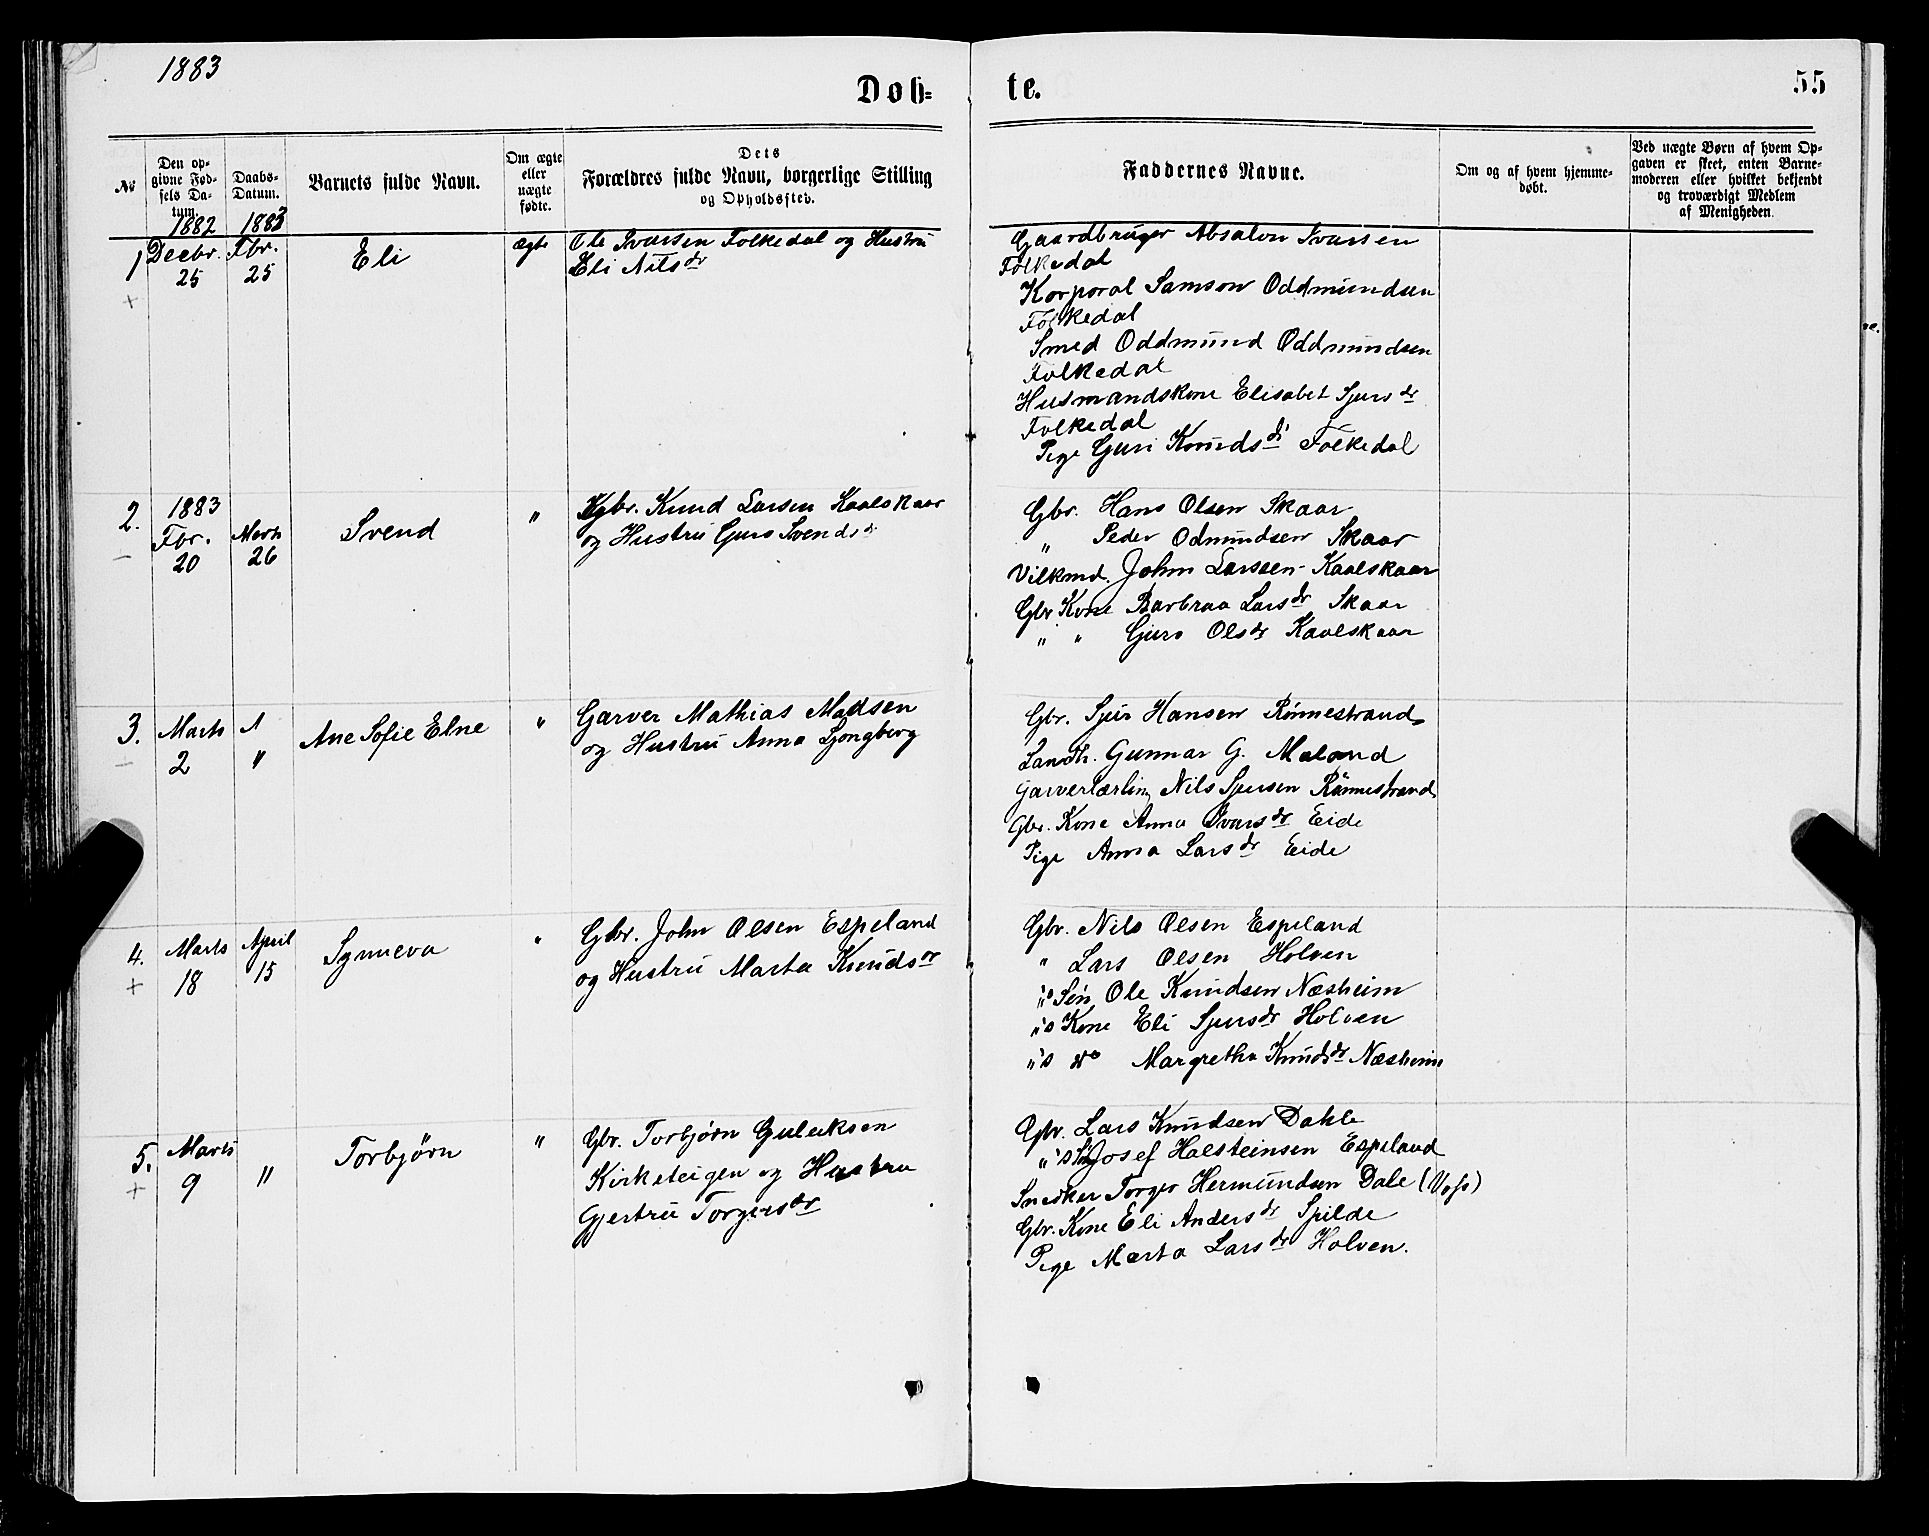 1883
Døb= te. 55
№
Den op-
givne Fød-
sels Da-
tum.
1882
Daabs-
Datum.
1883
Barnets fulde Navn.
Om ægte
eller
uægte
fødte.
Dets
Forældres fulde Navn, borgerlige Stilling
og Opholdssted.
Faddernes Navne.
Om og af hvem hjemme-
døbt.
Ved uægte Børn af hvem Op-
gaven er skeet, enten Barne-
moderen eller hvilket bekjendt
og troværdigt Medlem
af Menigheden.
1
+
Decbr.
25
Fbr.
25
Eli
ægte
Ole Ivarsen Folkedal og Hustru
Eli Nilsdr
Gaardbruger Absalon Ivarsen
Folkedal
Korporal Samson Oddmundsen
Folkedal
Smed Oddmund Oddmundsen
Folkedal
Husmandskone Elisabet Sjursdr
Folkedal
Pige Guri Knudsdr Folkedal
2.
–
1883
Fbr.
20
Marts
26
Svend
"
Gbr. Knud Larsen Kaalskaar
og Hustru Guro Svendsdr
Gbr. Hans Olsen Skaar
" Peder Odmundsen Skaar
Vilkmd. John Larssen Kaalskaar
Gbr Kone Barbraa Larsdr Skaar
" " Guro Olsdr Kaalskaar
3.
–
Marts
2
"
Ane Sofie Elne
"
Garver Mathias Madsen
og Hustru Anna Ljongberg
Gbr. Sjur Hansen Rønnestrand
Landh. Gunnar G. Maland
Garverlærling Nils Sjursen Rønnestrand
Gbr. Kone Anna Ivarsdr Eide
Pige Anna Larsdr Eide
4.
+
Marts
18
April
15
Synneva
"
Gbr. John Olsen Espeland
og Hustru Marta Knudsdr
Gbr. Nils Olsen Espeland
" Lars Olsen Holven
"s Søn Ole Knudsen Næsheim
"s Kone Eli Sjursdr Holven
"s do Margretha Knudsdr Næsheim
5.
+
Marts
9
"
Torbjørn
"
Gbr. Torbjørn Guleiksen
Kirketeigen og Hustru
Gjertru Torgersdr
Gbr. Lars Knudsen Dahle
"s Søn Josef Halsteinsen Espeland
Snedker Torger Hermundsen Dale (Voss)
Gbr. Kone Eli Andersdr Spilde
Pige Marta Larsdr Holven.